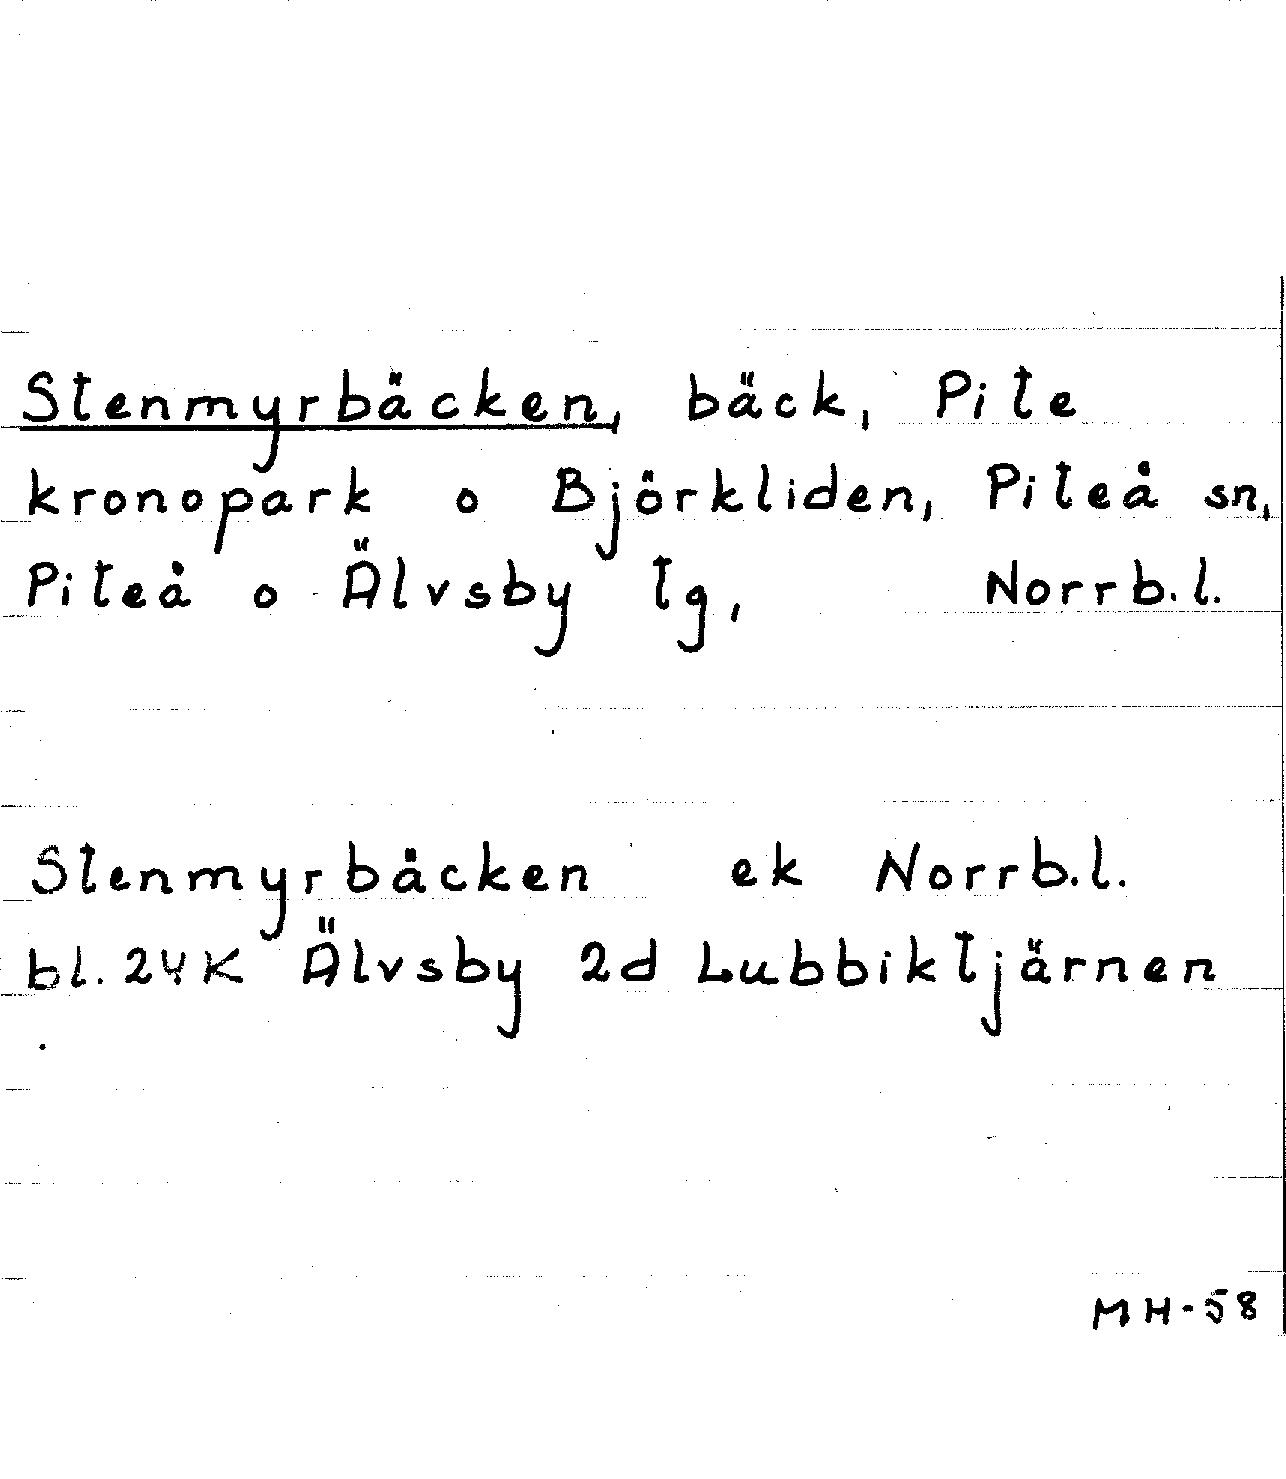 Stenmyrbäcken, bäck, Pite
kronopark o Björkliden, Piteå sn,
Piteå o Älvsby tg, Norrb.l.
Stenmyrbäcken ek Norrb.l.
bl. 24K Älvsby 2d Lubbiktjärnen
MH-58